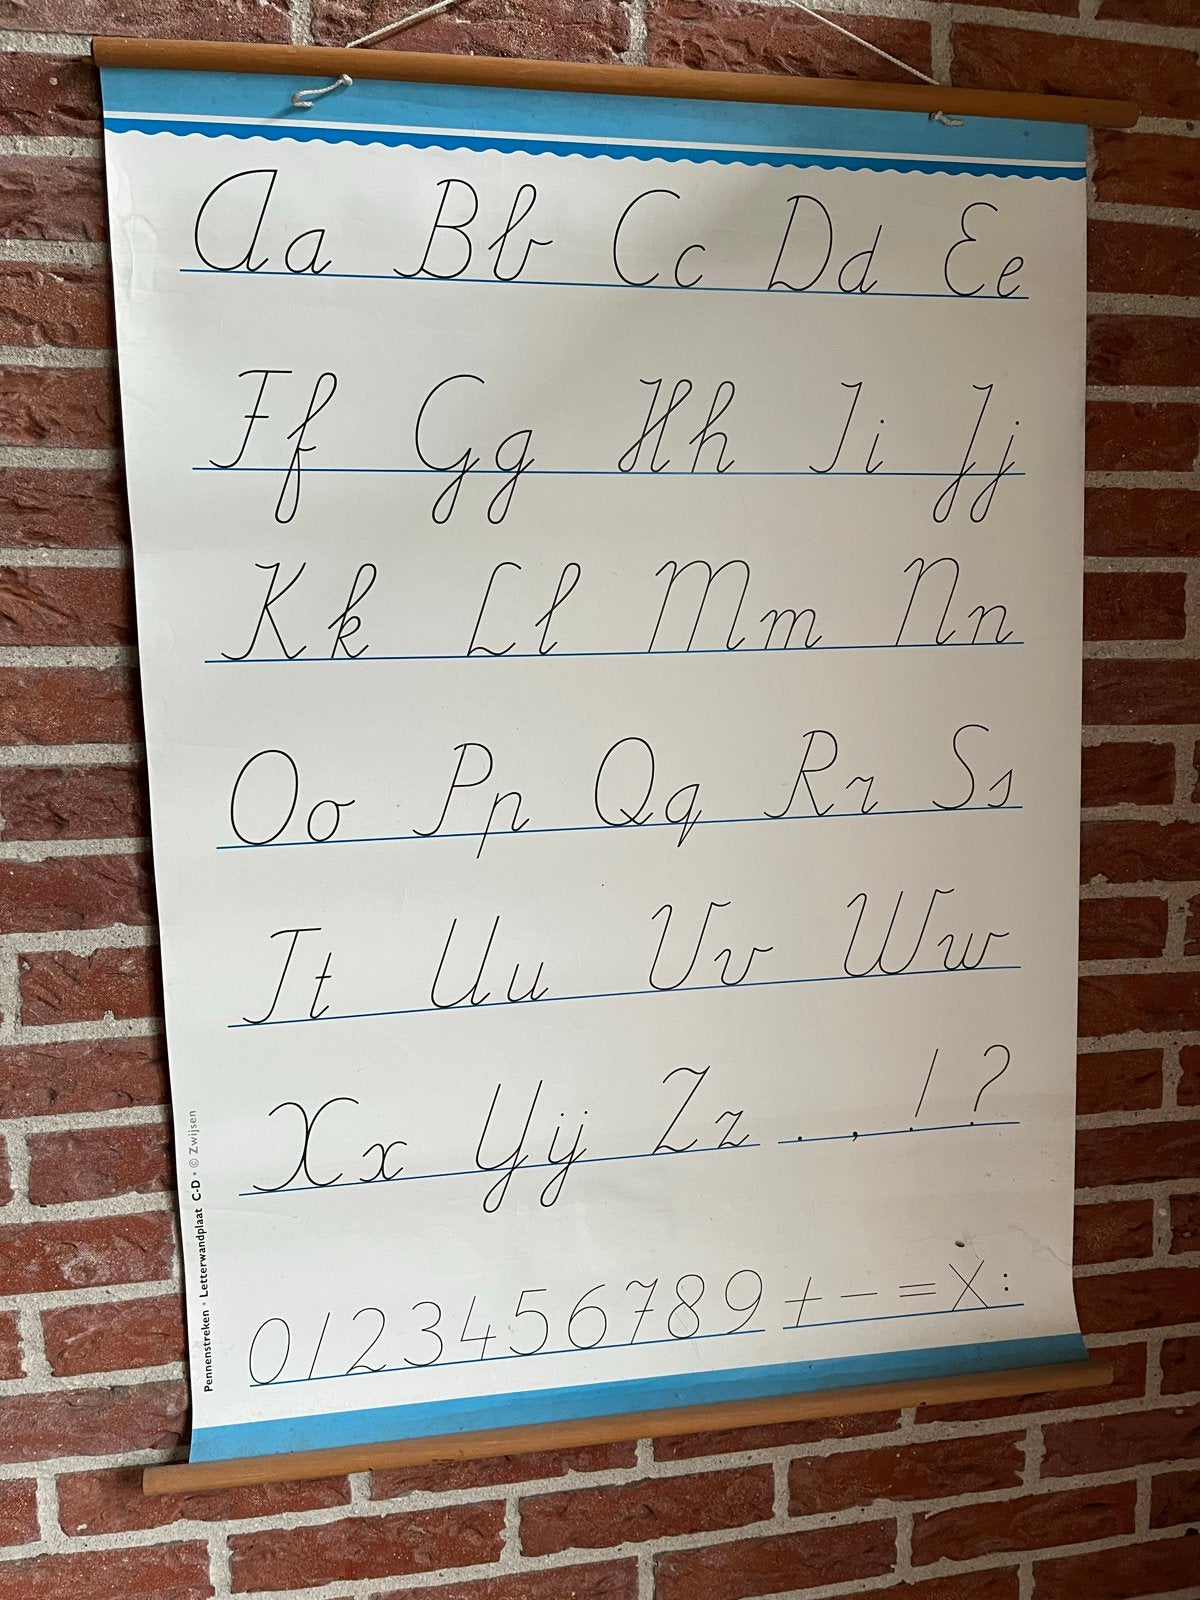 Aa Bb Cc Dd Ee
Ff Gg Hh Ii Jj
Kk Ll Mm Nn
Oo Pp Qq Rr Ss
Tt Uu Vv Ww
Xx Yij Zz . , ! ?
0 1 2 3 4 5 6 7 8 9 + - = x :
Pennenstreken • Letterwandplaat C-D • © Zwijsen